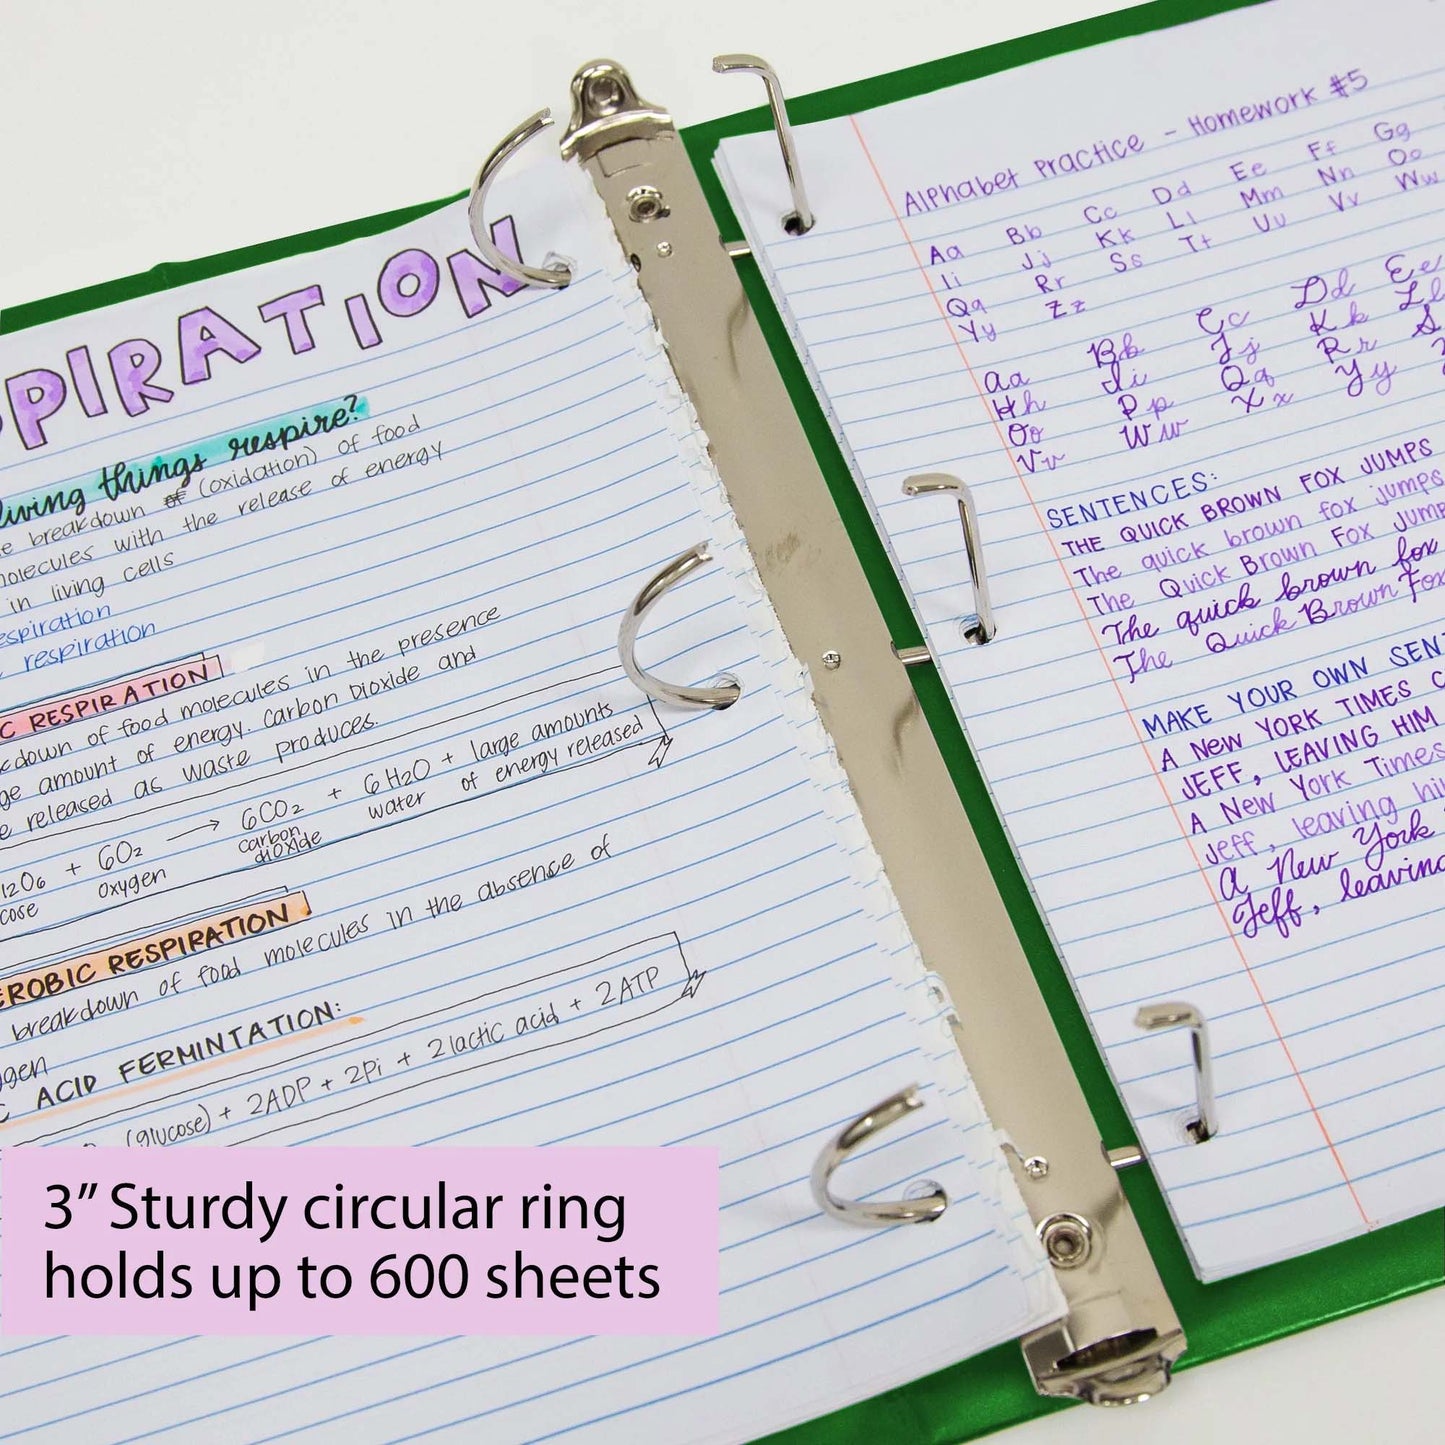 PIRATION
living things respire?
breakdown of (oxidation) of food
molecules with the release of energy
in living cells
respiration
respiration
C RESPIRATION
down of food molecules in the presence
amount of energy. Carbon Dioxide and
released as waste produces.
6O2 → 6CO2 + 6H2O + large amounts
oxygen carbon dioxide water of energy released
EROBIC RESPIRATION
breakdown of food molecules in the absence of
C ACID FERMINTATION:
(glucose) + 2ADP + 2Pi + 2 lactic acid + 2ATP
Alphabet Practice - Homework #5
Aa Bb Cc Dd Ee Ff Gg
Ii Jj Kk Ll Mm Nn Oo
Qq Rr Ss Tt Uu Vv Ww
Yy Zz
Aa Bb Cc Dd Ee
Hh Ii Jj Kk Ll
Oo Pp Qq Rr S
Vv Ww Xx Yy
SENTENCES:
THE QUICK BROWN FOX JUMPS
The quick brown fox jumps
The Quick Brown Fox Jump
The quick brown fox
The Quick Brown Fox
MAKE YOUR OWN SEN
A NEW YORK TIMES C
JEFF, LEAVING HIM
A New York Times
Jeff, leaving hi
A New York
Jeff, leaving
3” Sturdy circular ring
holds up to 600 sheets